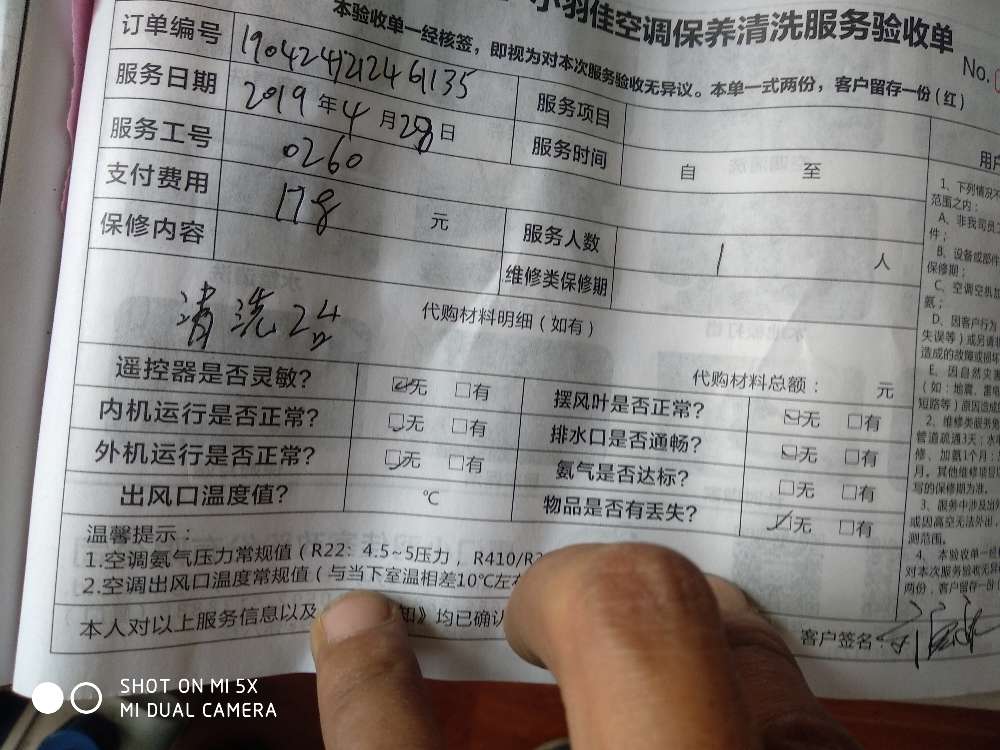 小羽佳空调保养清洗服务验收单
本验收单一经核签，即视为对本次服务验收无异议。本单一式两份，客户留存一份（红）
No.
订单编号 190424212246135 服务项目
服务日期 2019年4月28日 服务时间 自 至
服务工号 0260
支付费用 178 元 服务人数 1 人
保修内容 维修类保修期
清洗2台
代购材料明细（如有）
代购材料总额： 元
遥控器是否灵敏? ☑无 □有 摆风叶是否正常? ☑无 □有
内机运行是否正常? ☑无 □有 排水口是否通畅? ☑无 □有
外机运行是否正常? ☑无 □有 氨气是否达标? □无 □有
出风口温度值? ℃ 物品是否有丢失? ☑无 □有
温馨提示：
1.空调氨气压力常规值（R22：4.5~5压力，R410/R
2.空调出风口温度常规值（与当下室温相差10℃左
本人对以上服务信息以及 知》均已确认
客户签名：
1、下列情况不
范围之内：
A、非我司员工
件；
B、设备或部件
保修期；
C、空调空执加
氨；
D、因客户行为
失误等）或另请
造成的故障或损
E、因自然灾害
（如：地震、雷
短路等）原因造成
2、维修类服务免
管道疏通3天；水
修、加氨1个月；
月。其他维修项目
写的保修期为准。
3、服务中涉及出外
或因高空无法外出
测范围。
4、本验收单一经
对本次服务验收无异
两份，客户留存一份
SHOT ON MI 5X
MI DUAL CAMERA